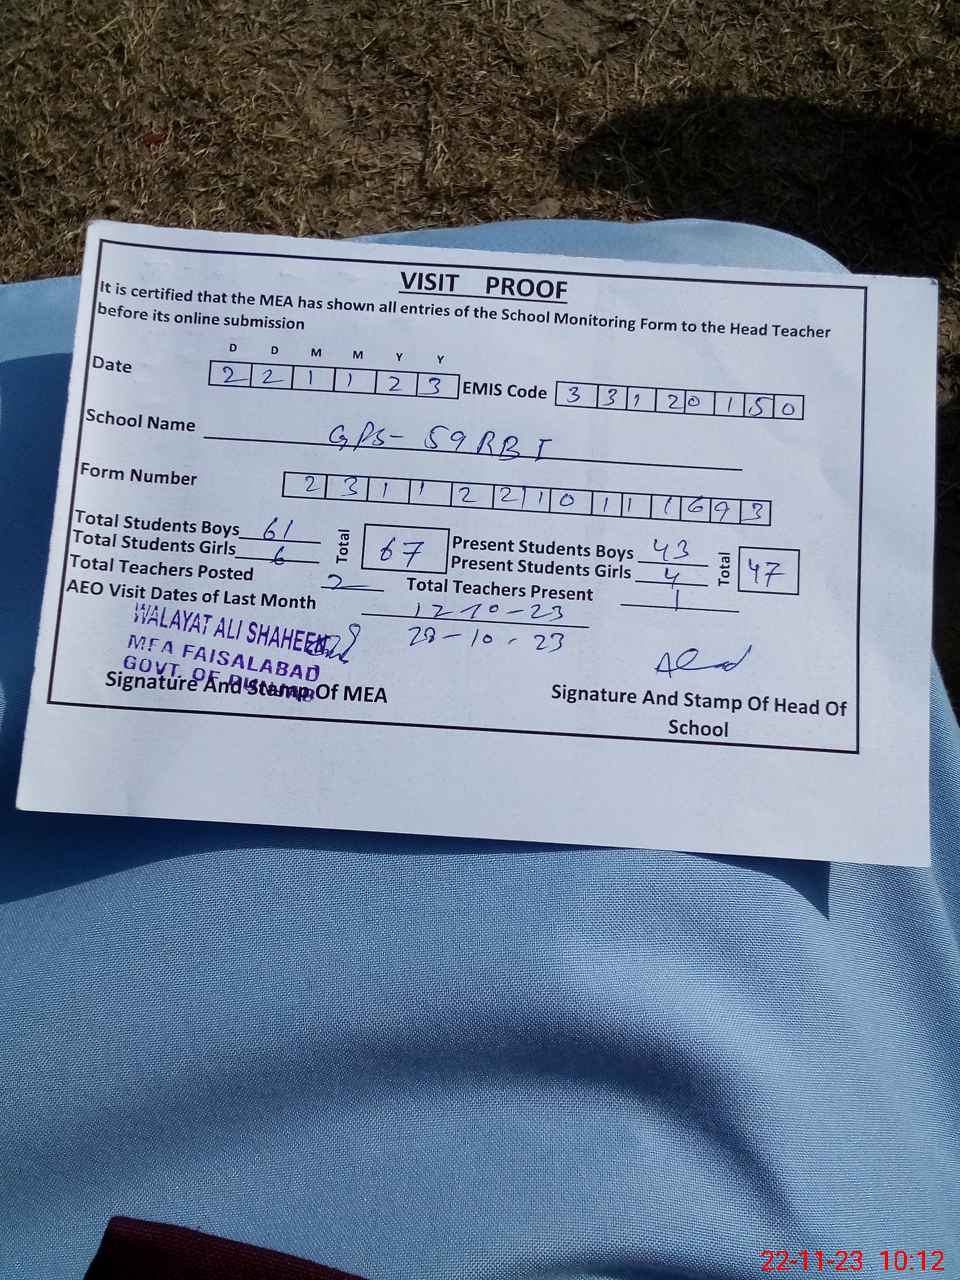 VISIT PROOF
It is certified that the MEA has shown all entries of the School Monitoring Form to the Head Teacher
before its online submission
D D M M Y Y
Date 2 2 1 1 2 3 EMIS Code 3 3 1 2 0 1 5 0
School Name GPS- 59 RB I
Form Number 2 3 1 1 2 2 1 0 1 1 1 6 9 3
Total Students Boys 61 Total 67 Present Students Boys 43 Total 47
Total Students Girls 6 Present Students Girls 4
Total Teachers Posted 2 Total Teachers Present 1
AEO Visit Dates of Last Month 12-10-23
28-10-23
WALAYAT ALI SHAHEEN
MEA FAISALABAD
GOVT. OF PUNJAB
Signature And Stamp Of MEA
Signature And Stamp Of Head Of
School
22-11-23 10:12